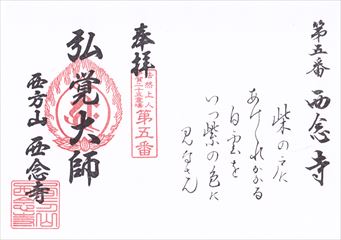 第五番 西念寺
柴の戸に
あけくれかかる
白雲を
いつ紫の色に
見なさん
奉拝
法然上人
二十五霊場
第五番
弘覚大師
西方山 西念寺